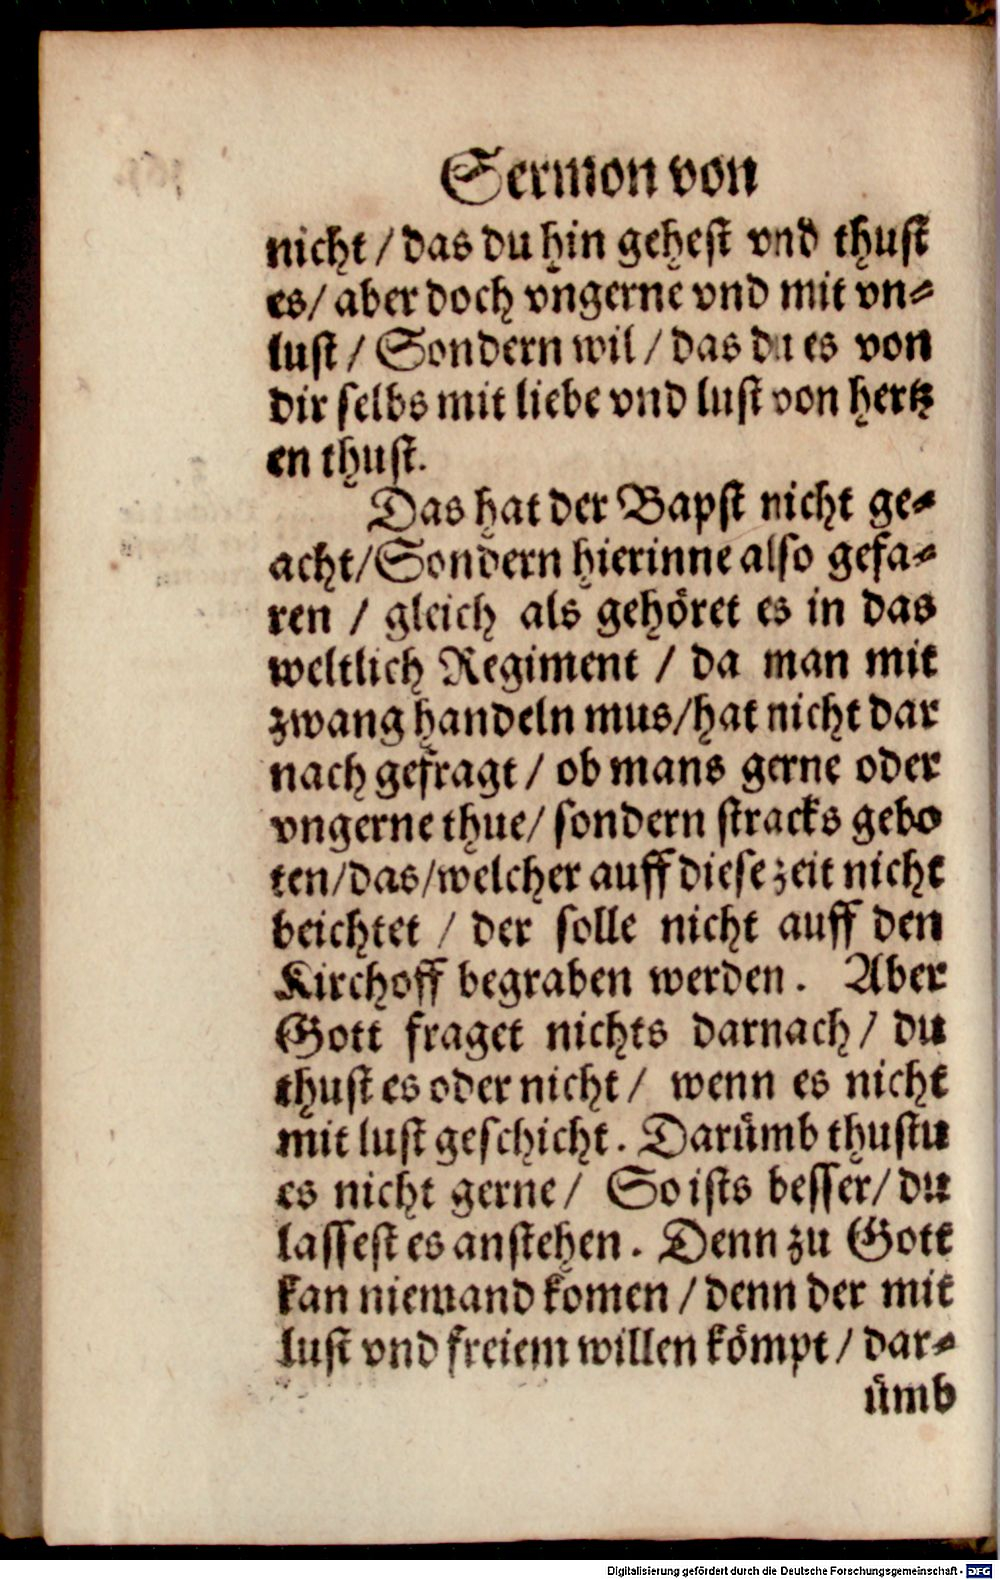 Sermon von
nicht / das du hin gehest vnd thust
es/ aber doch vngerne vnd mit vn⸗
lust / Sondern wil / das du es von
dir selbs mit liebe vnd lust von hertz
en thust.
Das hat der Bapst nicht ge⸗
acht/Sondern hierinne also gefa⸗
ren / gleich als gehöret es in das
weltlich Regiment / da man mit
zwang handeln mus/hat nicht dar
nach gefragt / ob mans gerne oder
vngerne thue/ sondern stracks gebo
ten/das/welcher auff diese zeit nicht
beichtet / der solle nicht auff den
Kirchoff begraben werden. Aber
Gott fraget nichts darnach / du
thust es oder nicht / wenn es nicht
mit lust geschicht. Darümb thustu
es nicht gerne / So ists besser/ du
lassest es anstehen. Denn zu Gott
kan niemand komen / denn der mit
lust vnd freiem willen kömpt / dar⸗
ümb
Digitalisierung gefördert durch die Deutsche Forschungsgemeinschaft - DFG